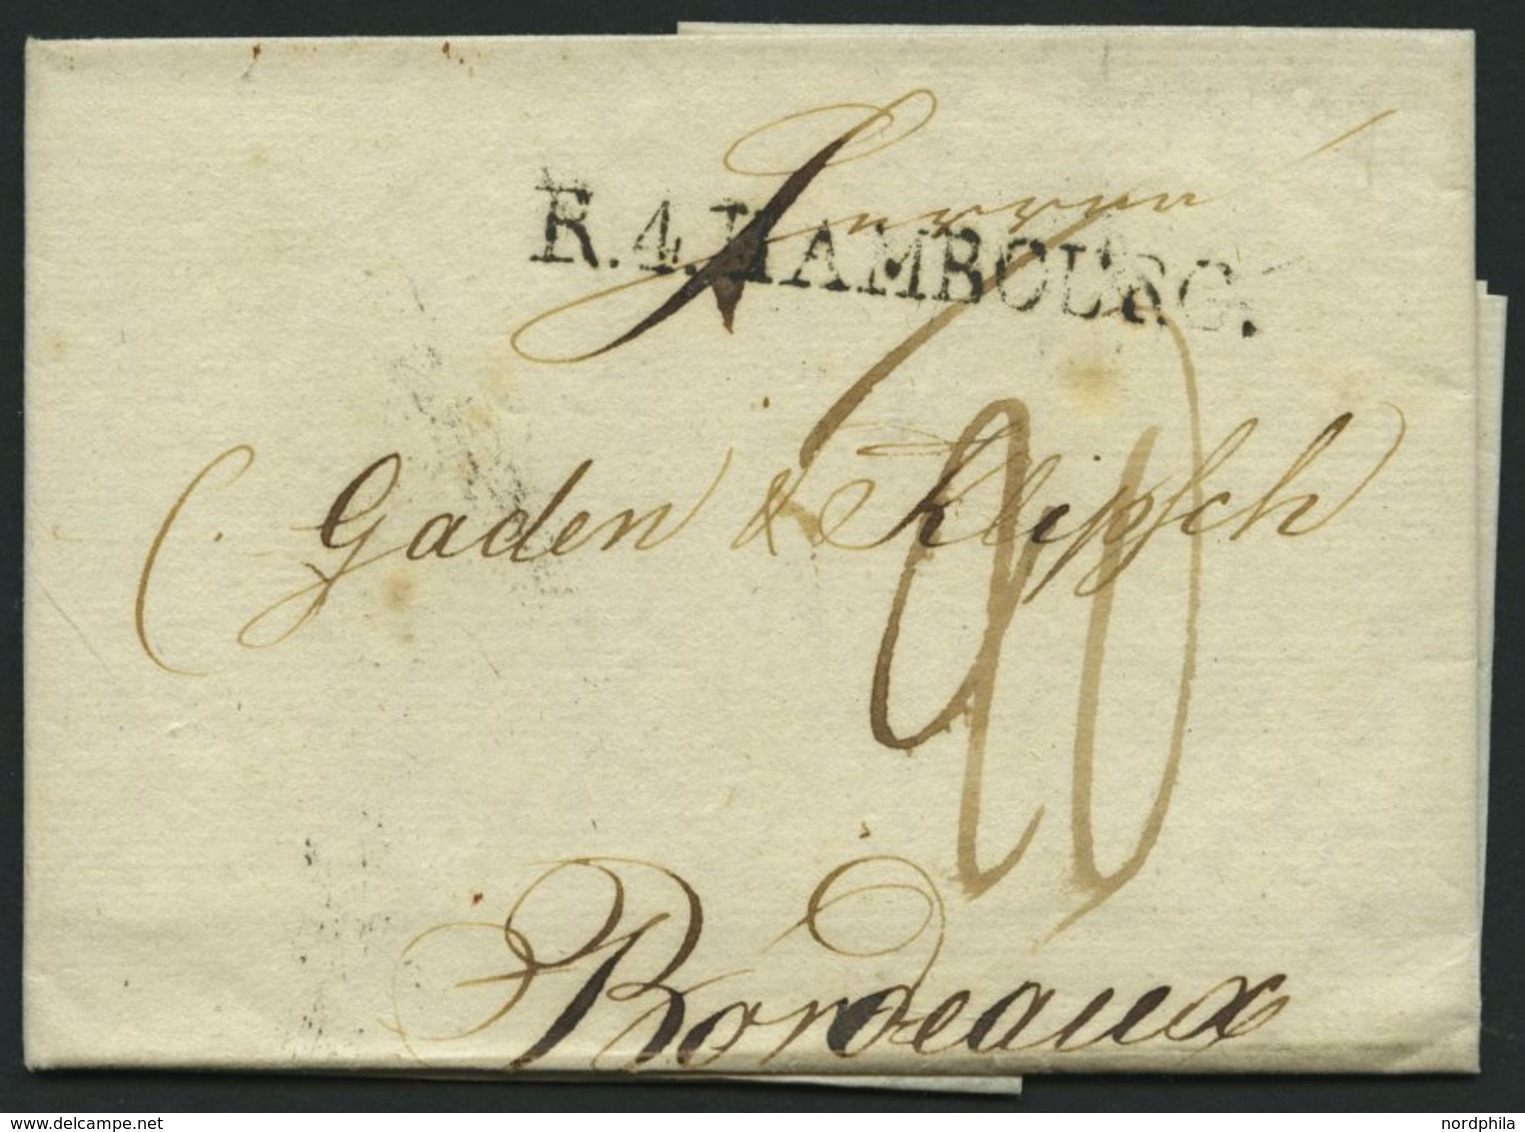 Herren
R.4.HAMBOURG.
Gaden & Klipsch
Bordeaux
www.delcampe.net
nordphila